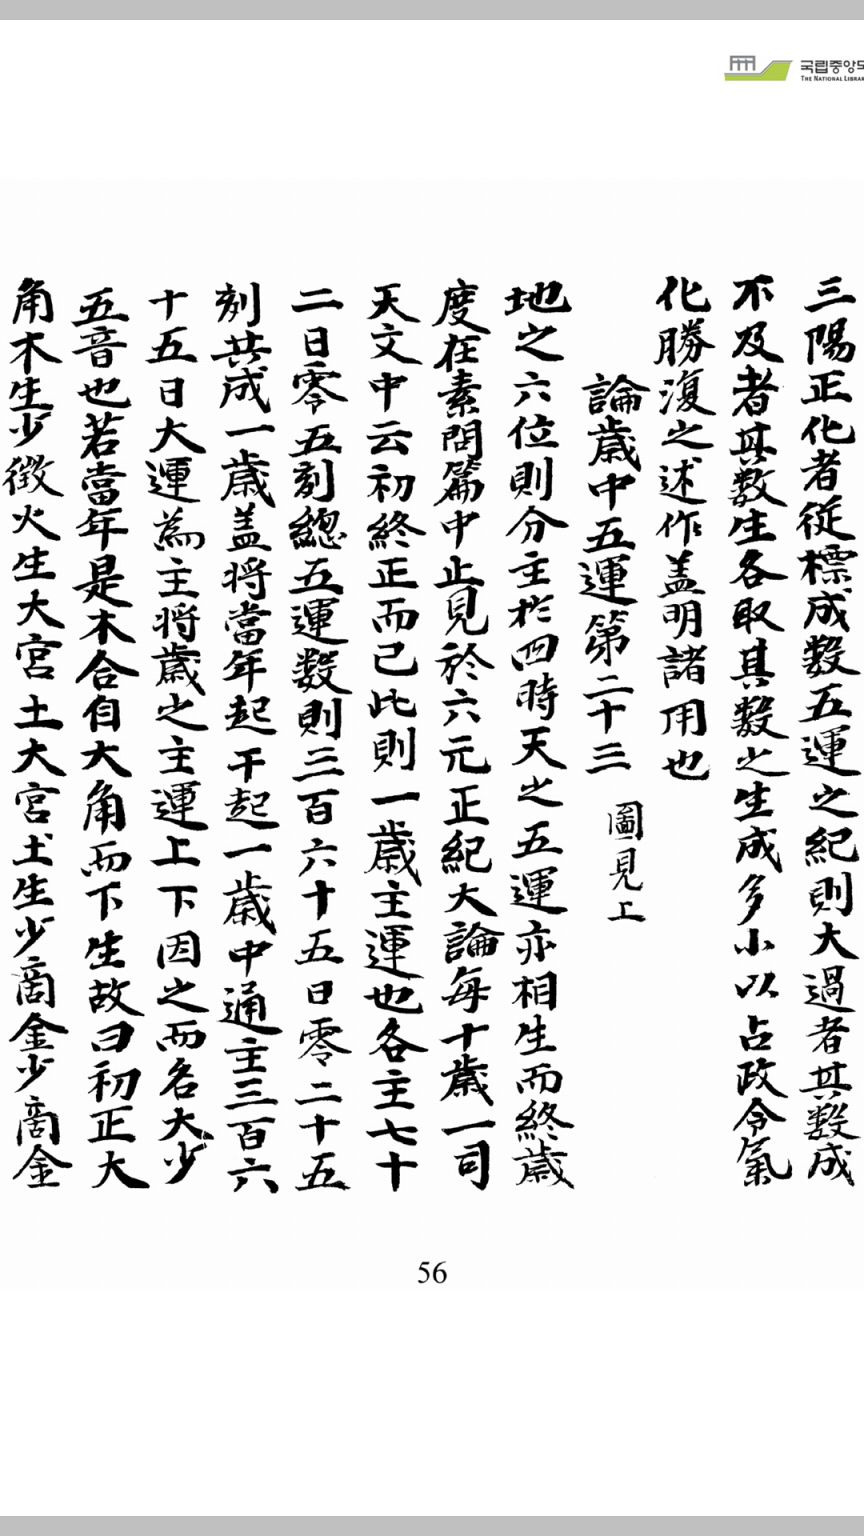 국립중앙도
THE NATIONAL LIBRAR
三陽正化者從標成數五運之紀則大過者其數成
不及者其數生各取其數之生成多小以占政令氣
化勝復之述作盖明諸用也
論歲中五運第二十三 圖見上
地之六位則分主於四時天之五運亦相生而終歲
度在素問篇中止見於六元正紀大論每十歲一司
天文中云初終正而已此則一歲主運也各主七十
二日零五刻總五運數則三百六十五日零二十五
刻共成一歲盖將當年起干起一歲中通主三百六
十五日大運為主將歲之主運上下因之而名大少
五音也若當年是木合自大角而下生故曰初正大
角木生少徵火生大宮土大宮土生少商金少商金
56